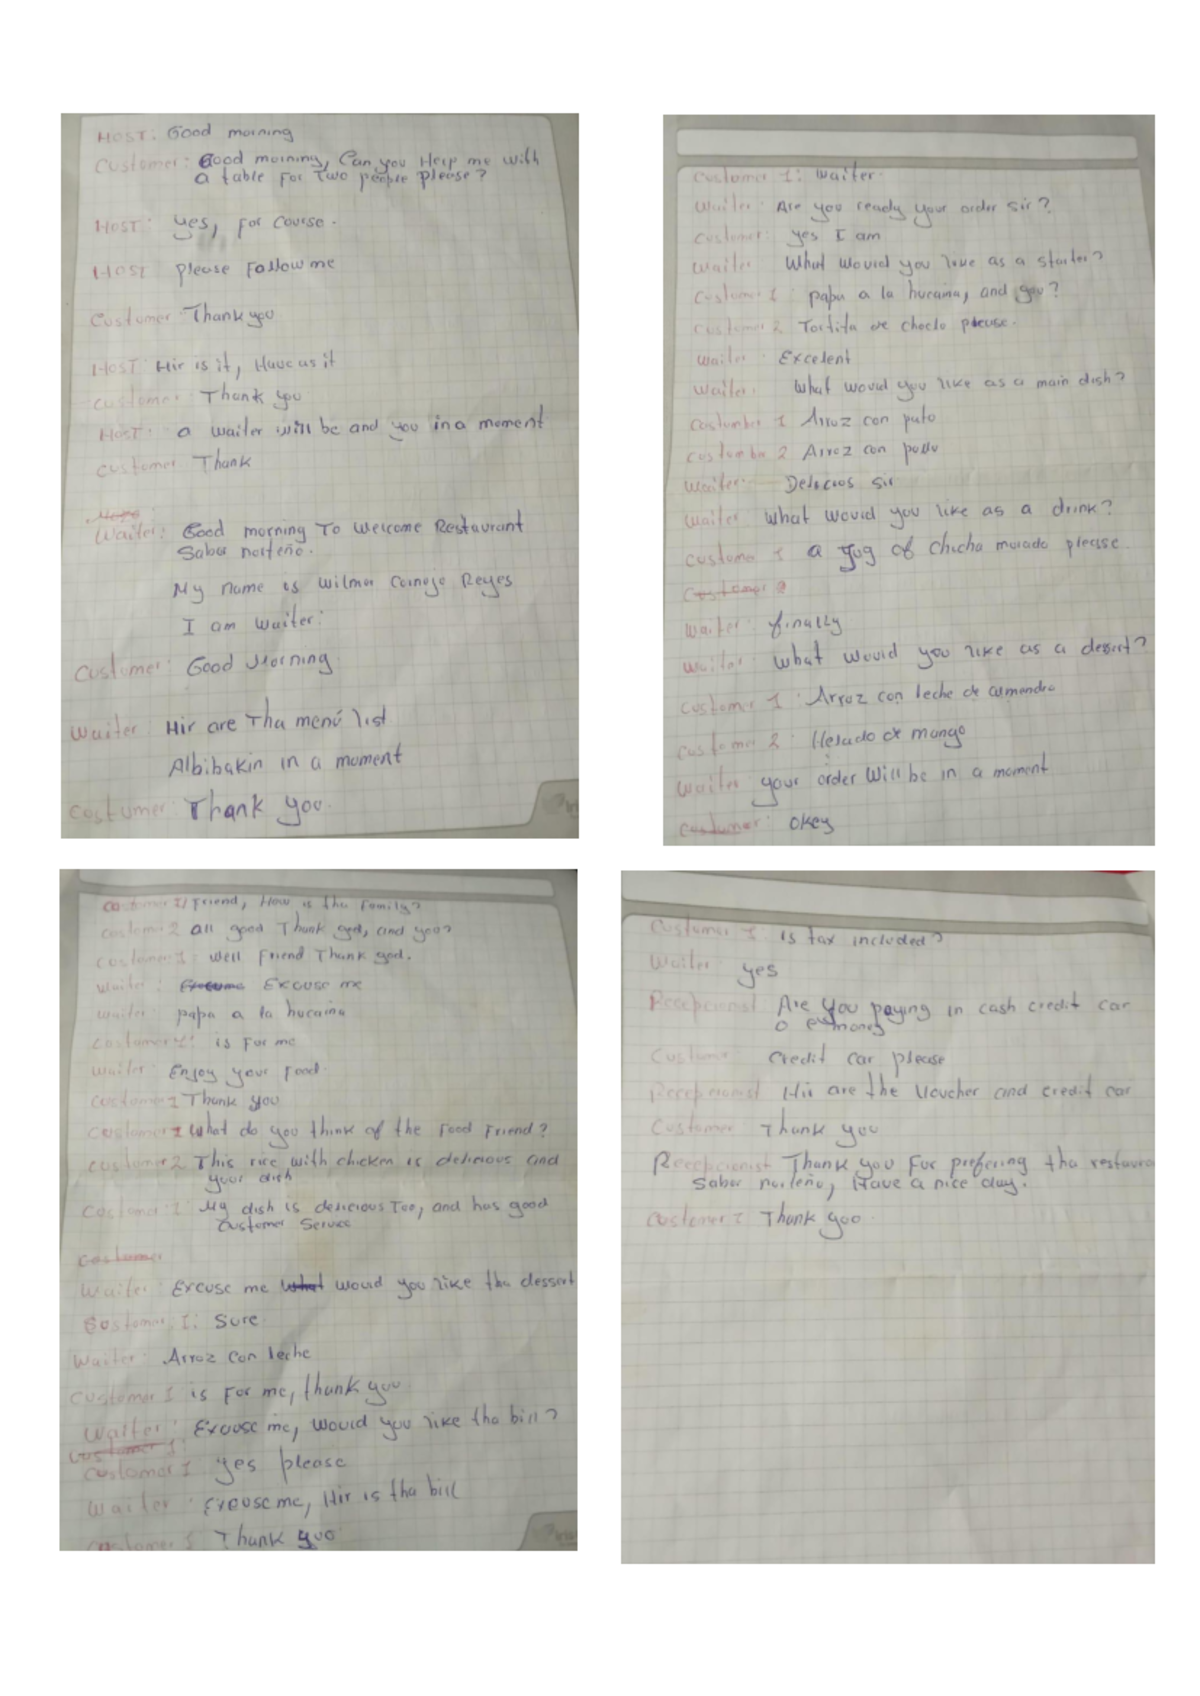 HOST: Good morning
Customer: Good morning, Can you Help me with
a table For Two people please?
HOST: yes, For course.
HOST please Follow me
Customer Thank you
HOST: Hir is it, Have as it
customer Thank you
HOST: a waiter will be and you in a moment
customer Thank
Waiter: Good morning To Welcome Restaurant
Sabor norteño.
My name is Wilmer Cornejo Reyes
I am Waiter:
Customer: Good Morning
Waiter Hir are Tha menú list
Albibakin in a moment
Costumer: Thank you.
Customer 1: Waiter.
Waiter: Are you ready your order sir?
Customer: yes I am
Waiter What would you like as a starter?
Customer 1 papa a la hucaina, and you?
customer 2 Tortita de choclo please.
waiter: Excelent
Waiter. What would you like as a main dish?
Costumber 1 Arroz con pato
costumber 2 Arroz con pollo
waiter: Delicios sir
Waiter What would you like as a drink?
customer 1 a Jug of chicha morado please
Customer 2
Waiter: finally
Waiter: what would you like as a dessert?
Customer 1: Arroz con leche de
Customer 2: Helado de mango
Waiter your order Will be in a moment
costumer: okey
Customer 1/ Friend, How is tha Family?
customer 2 all good Thank god, and you?
Costomer 1: well Friend Thank god.
Waiter: Excuse me
waiter: papa a la hucaina
Costomer 1: is For me
Waiter: Enjoy your Food.
Customer 1 Thank you
Customer 1 What do you think of the Food Friend?
customer 2 This rice with chicken is delicious and
your dish
Customer 1: My dish is delicious Too, and has good
Customer Service
Costumer
Waiter: Excuse me what would you like tha dessert
Customer 1: Sure.
Waiter: Arroz con leche
Customer 1 is For me, thank you.
Waiter: Excuse me, Would you like tha bill?
Customer 1:
Customer 1 yes please
Waiter: Excuse me, Hir is tha bill
Customer 1 Thank you
Customer 1: is tax included?
Waiter: yes
Recepcionist Are you paying in cash credit car
o
Customer Credit car please
Recepcionist Hir are the Voucher and credit car
Customer Thank you
Recepcionist Thank you For prefering tha restaura
Sabor norteño, Have a nice day.
Customer 1 Thank you.